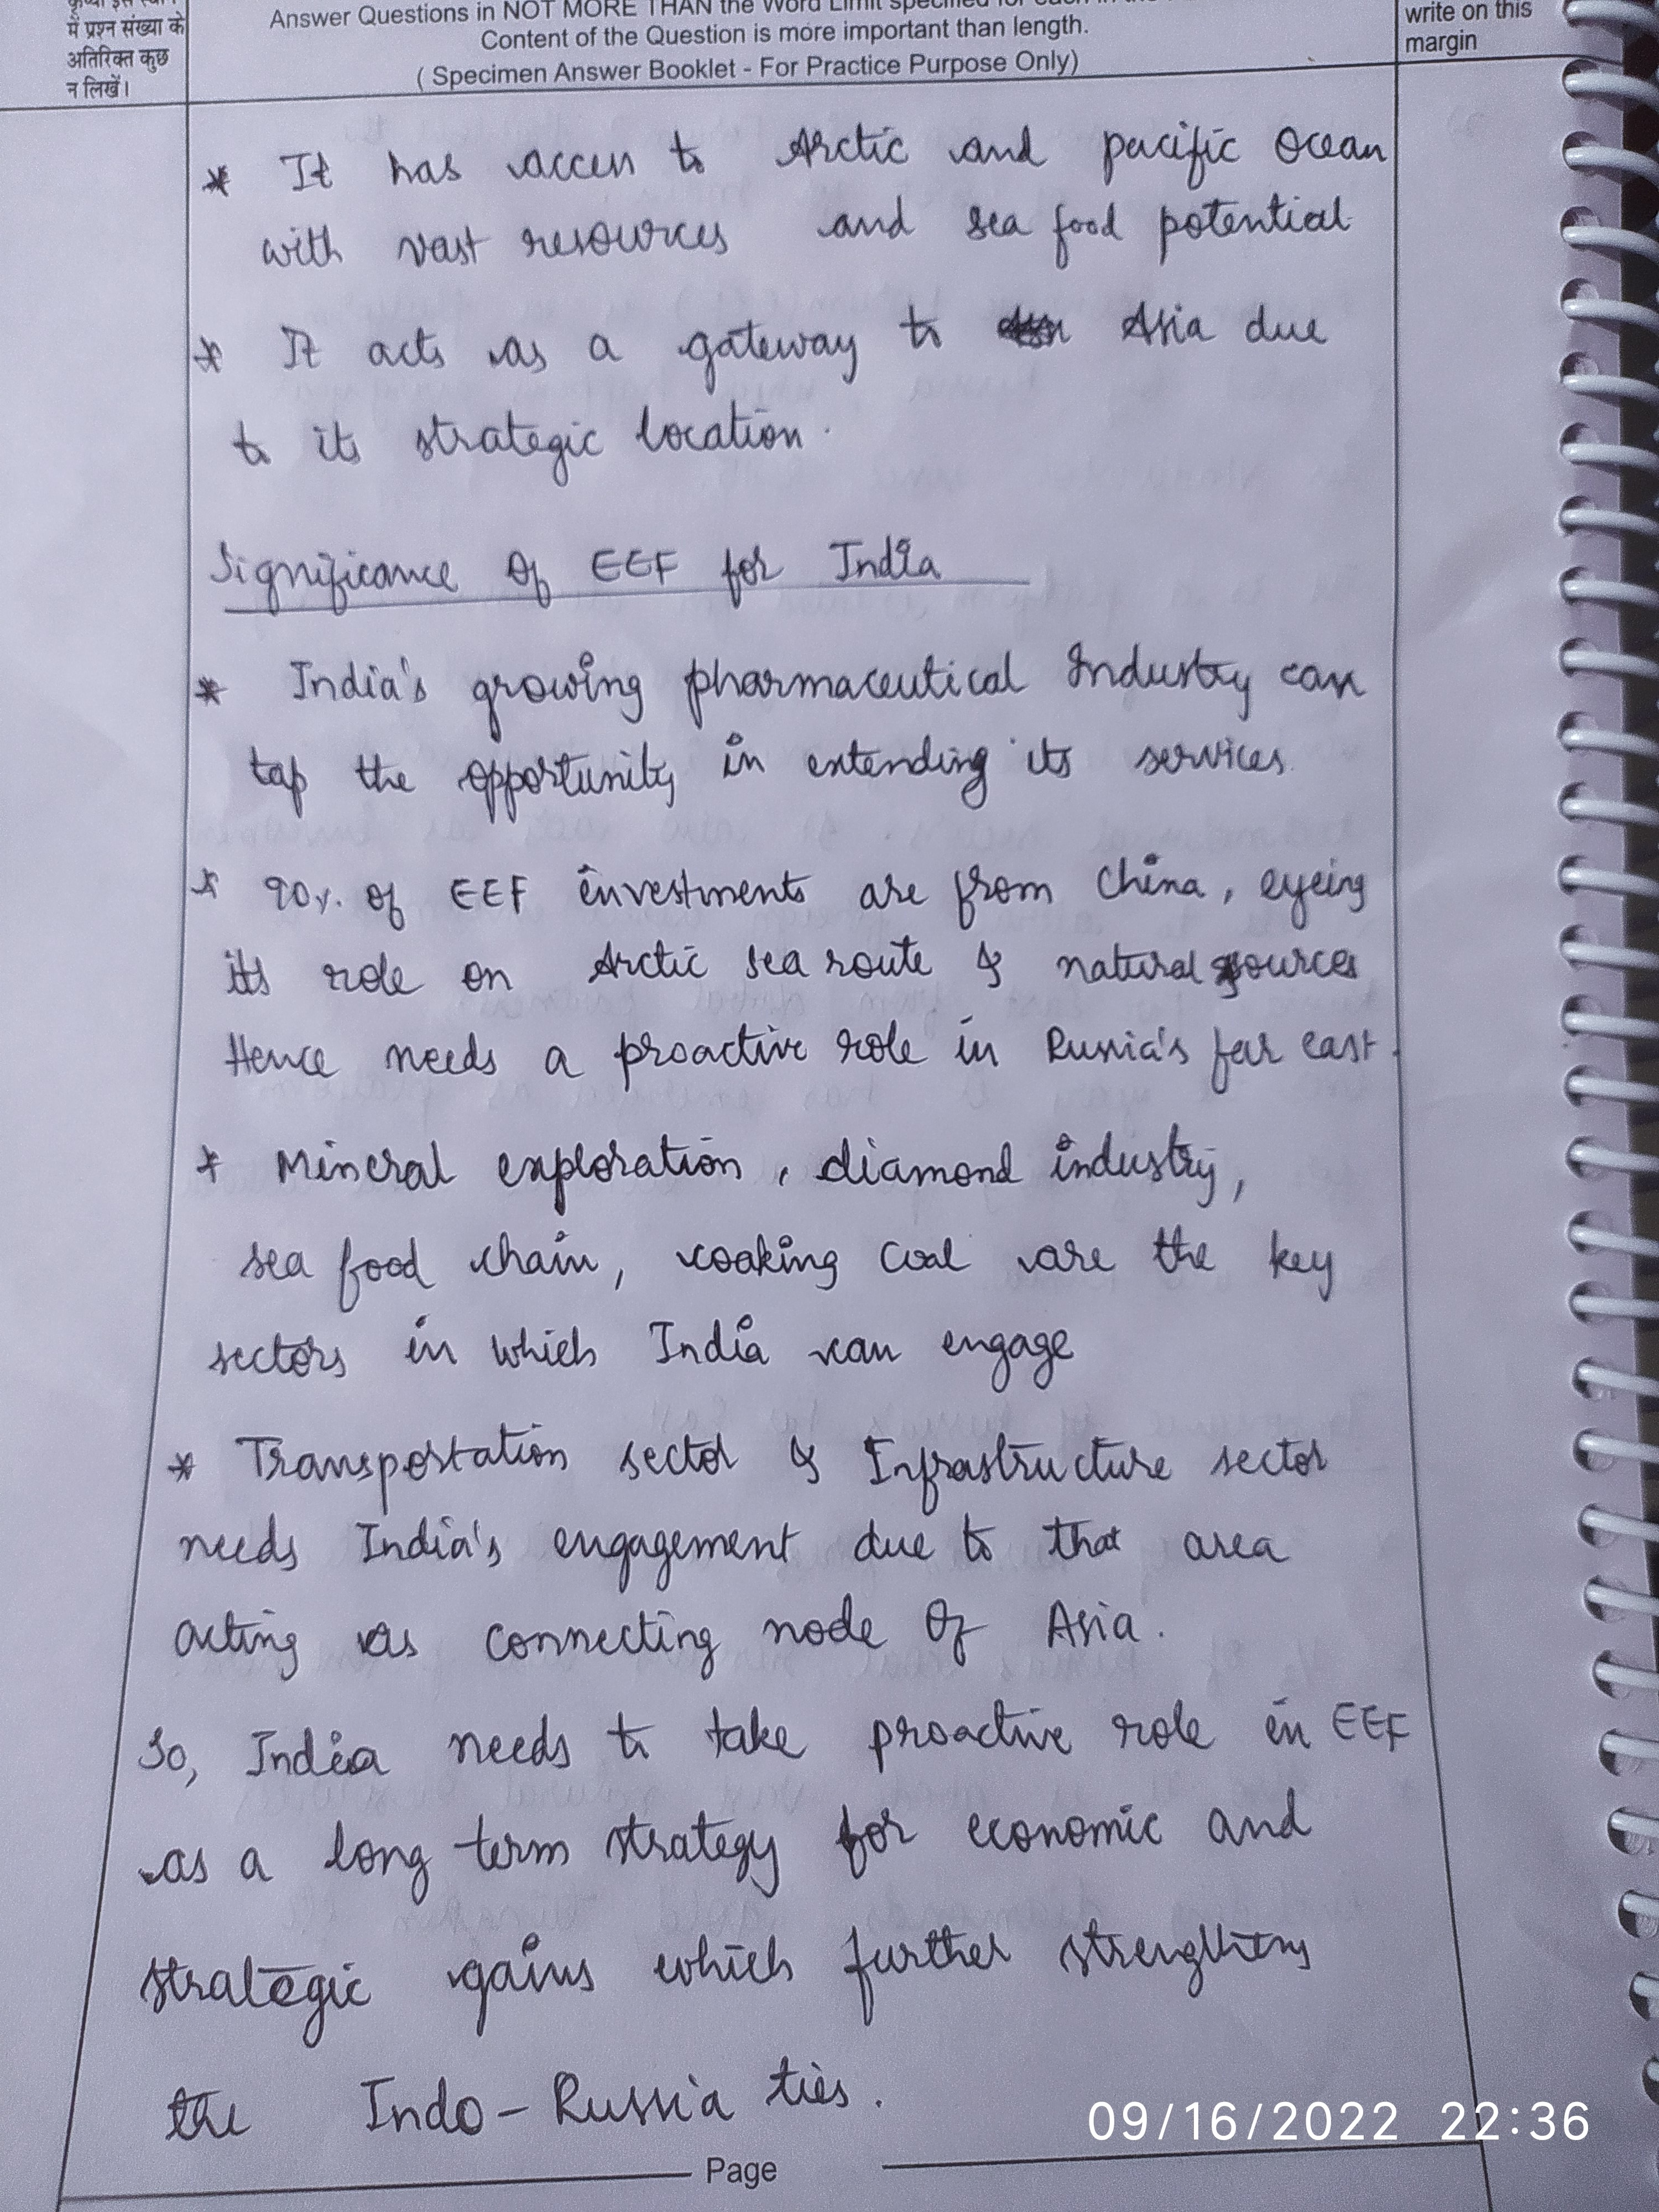 में प्रश्न संख्या के
अतिरिक्त कुछ
न लिखें।
Answer Questions in NOT MORE THAN the Word Limit specified for each in the
Content of the Question is more important than length.
( Specimen Answer Booklet - For Practice Purpose Only)
write on this
margin
* It has access to Arctic and pacific Ocean
with vast resources and sea food potential
* It acts as a gateway to Asia due
to its strategic location.
Significance Of EEF for India
* India's growing pharmaceutical Industry can
tap the opportunity in extending its services.
* 90%. of EEF investments are from China, eyeing
its role on Arctic sea route & natural sources
Hence needs a proactive role in Russia's far east.
* Mineral exploration, diamond industry,
sea food chain, coaking coal are the key
sectors in which India can engage
* Transportation sector & Infrastructure sector
needs India's engagement due to that area
acting as connecting node Of Asia.
So, India needs to take proactive role in EEF
as a long term strategy for economic and
strategic gains which further strengthens
the Indo-Russia ties.
09/16/2022 22:36
Page